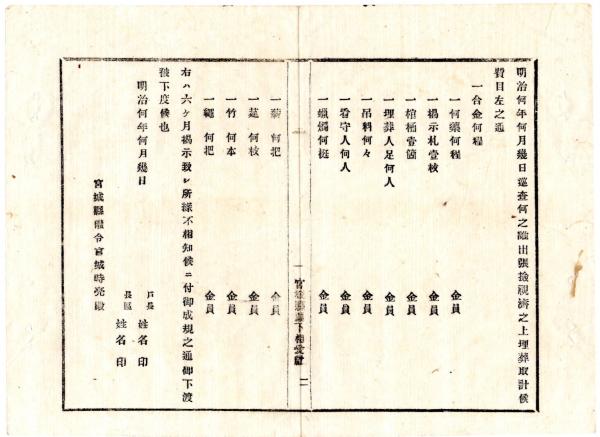 明治何年何月幾日巡査何之誰出張撿視濟之上埋葬取計候
費目左之通
一合金何程
一何藥何程 金員
一揭示札壹枚 金員
一棺桶壹箇 金員
一埋葬人足何人 金員
一吊料何々 金員
一看守人何人 金員
一蠟燭何挺 金員
宮城縣 二
一薪何把 金員
一莚何枚 金員
一竹何本 金員
一繩何把 金員
右ハ六ケ月揭示致シ所緣不相知候ニ付御成規之通御下渡
被下度候也
明治何年何月幾日
戶長 姓名印
區長 姓名印
宮城縣權令宮城時亮殿